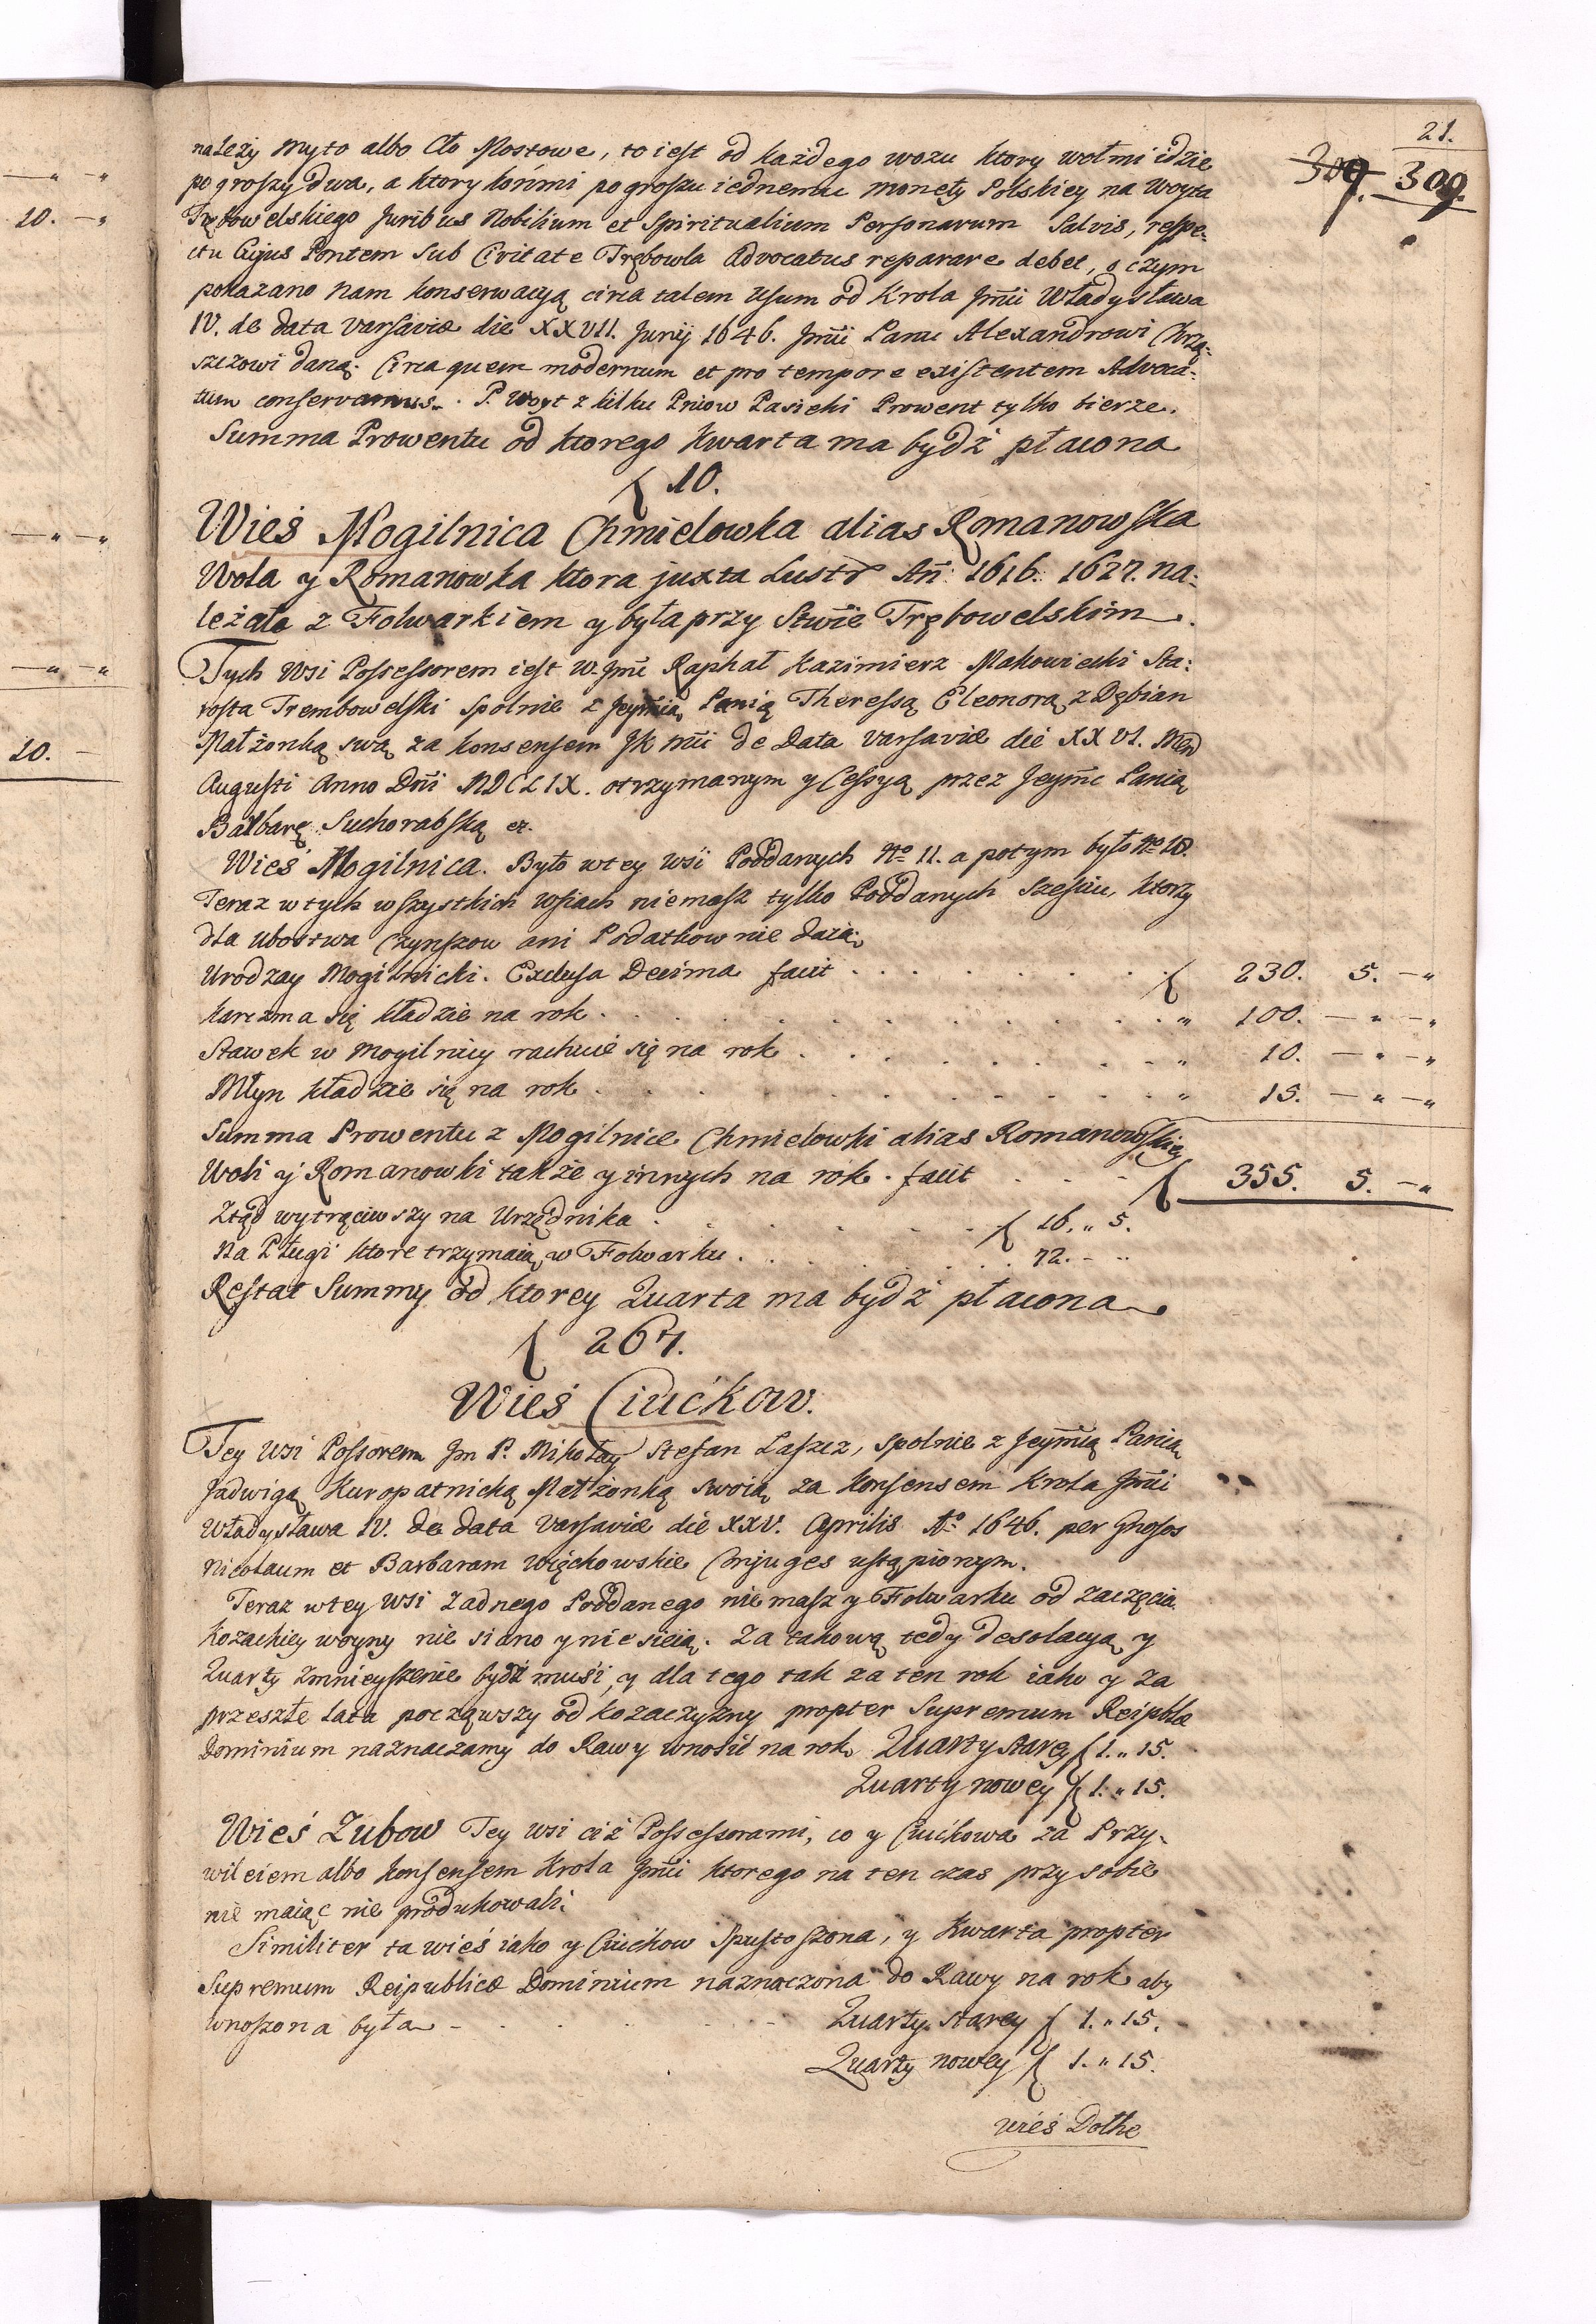 21.
309. 309.
należy Myto albo Cło Mostowe, to iest od każdego wozu ktory wołmi idzie
po groszy dwa, a ktory końmi po groszu iednemu Monety Polskiey na Woyta
Trębowelskiego Juribus Nobilium et Spiritualium Personarum Salvis, respe=
ctu Cujus Pontem sub Civitate Trębowla Advocatus reparare debet, o czym
pokazano nam konserwacyą circa talem Usum od Krola Jmci Władysława
IV. de data Varsaviæ die XXVII. Junij 1646. Jmci Panu Alexandrowi Chrzą=
szczowi daną. Circa quem modernum et pro tempore existentem Advoca=
tum conservamus. P. Woyt z kilku Pniow Pasieki Prowent tylko bierze.
Summa Prowentu od ktorego Kwarta ma bydź płacona
ƒ 10.
Wieś Mogilnica Chmielowka alias Romanowska
Wola y Romanowka ktora juxta Lustr Añ: 1616. 1627. na=
leżała z Folwarkiem y była przy Stwie Trębowelskim.
Tych Wsi Possessorem iest W. Jmć Raphał Kazimierz Makowiecki Sta=
rosta Trembowelski Spolnie z Jeymcią Panią Theressą Eleonorą z Dębian
Małżonką swą za konsensem JK Mci de Data Varsaviæ die XXVI. Men
Augusti Anno Dñi MDCLIX. otrzymanym y Cessyą przez Jeymć Panią
Barbarę Suchorabską etc.
Wieś Mogilnica. Było w tey Wsi Poddanych No 11. a potym było No 10.
Teraz w tych wszystkich Wsiach niemasz tylko Poddanych Szesciu, ktorzy
dla Ubostwa Czynszow ani Podatkow nie daią.
Urodzay Mogilnicki. Exclusa Decima facit . . . . . . . . ƒ 230. 5. —"
Karczma się kładzie na rok . . . . . . . . . . . . " 100. —" —"
Stawek w Mogilnicy rachuie się na rok . . . . . . . . " 10. —" —"
Młyn kładzie się na rok . . . . . . . . . . . . " 15. —" —"
Summa Prowentu z Mogilnice Chmielowki alias Romanowskiey
Woli y Romanowki także y innych na rok. facit . . . ƒ 355. 5. —"
Ztąd wytrąciwszy na Urzędnika . . . . . . . . ƒ 16. " 5.
Na Pługi ktore trzymaią w Folwarku . . . . . . . 72. - ..
Restat Summy od ktorey Quarta ma bydź płacona
ƒ 267.
Wieś Ciućkow.
Tey Wsi Possorem Jm P. Mikołay Stefan Laszcz, spolnie z Jeymcią Panią
Jadwigą Kuropatnicką Małżonką swoią za Konsensem Krola Jmci
Władysława IV. de data Varsaviæ die XXV. Aprilis Ao 1646. per Gnosos
Nicolaum et Barbaram Więckowskie Conjuges ustąpionym.
Teraz w tey Wsi żadnego Poddanego nie masz y Folwarku od zaczęcia
Kozackiey woyny nie siano y nie sieią. Za takową tedy desolacyą y
Quarty zmnieyszenie bydź musi, y dla tego tak za ten rok iako y za
przeszłe lata począwszy od kozaczyzny propter Supremum Reipblæ
Dominium naznaczamy do Rawy wnosić na rok Quarty starey ƒ 1. " 15.
Quarty nowey ƒ 1. " 15.
Wieś Zubow Tey wsi ciż Possessorami, co y Ciućkowa za Przy=
wileiem albo konsensem Krola Jmci ktorego na ten czas przy sobie
nie maiąc nie produkowali.
Similiter ta wieś iako y Ciućkow Spustoszona, y Kwarta propter
Supremum Reipublicæ Dominium naznaczona do Rawy na rok aby
wnoszona była - . . . . . - Quarty starey ƒ 1. " 15.
Quarty nowey ƒ 1. " 15.
wieś Dołhe
—" —"
10. —"
—" —"
—" —"
10. —